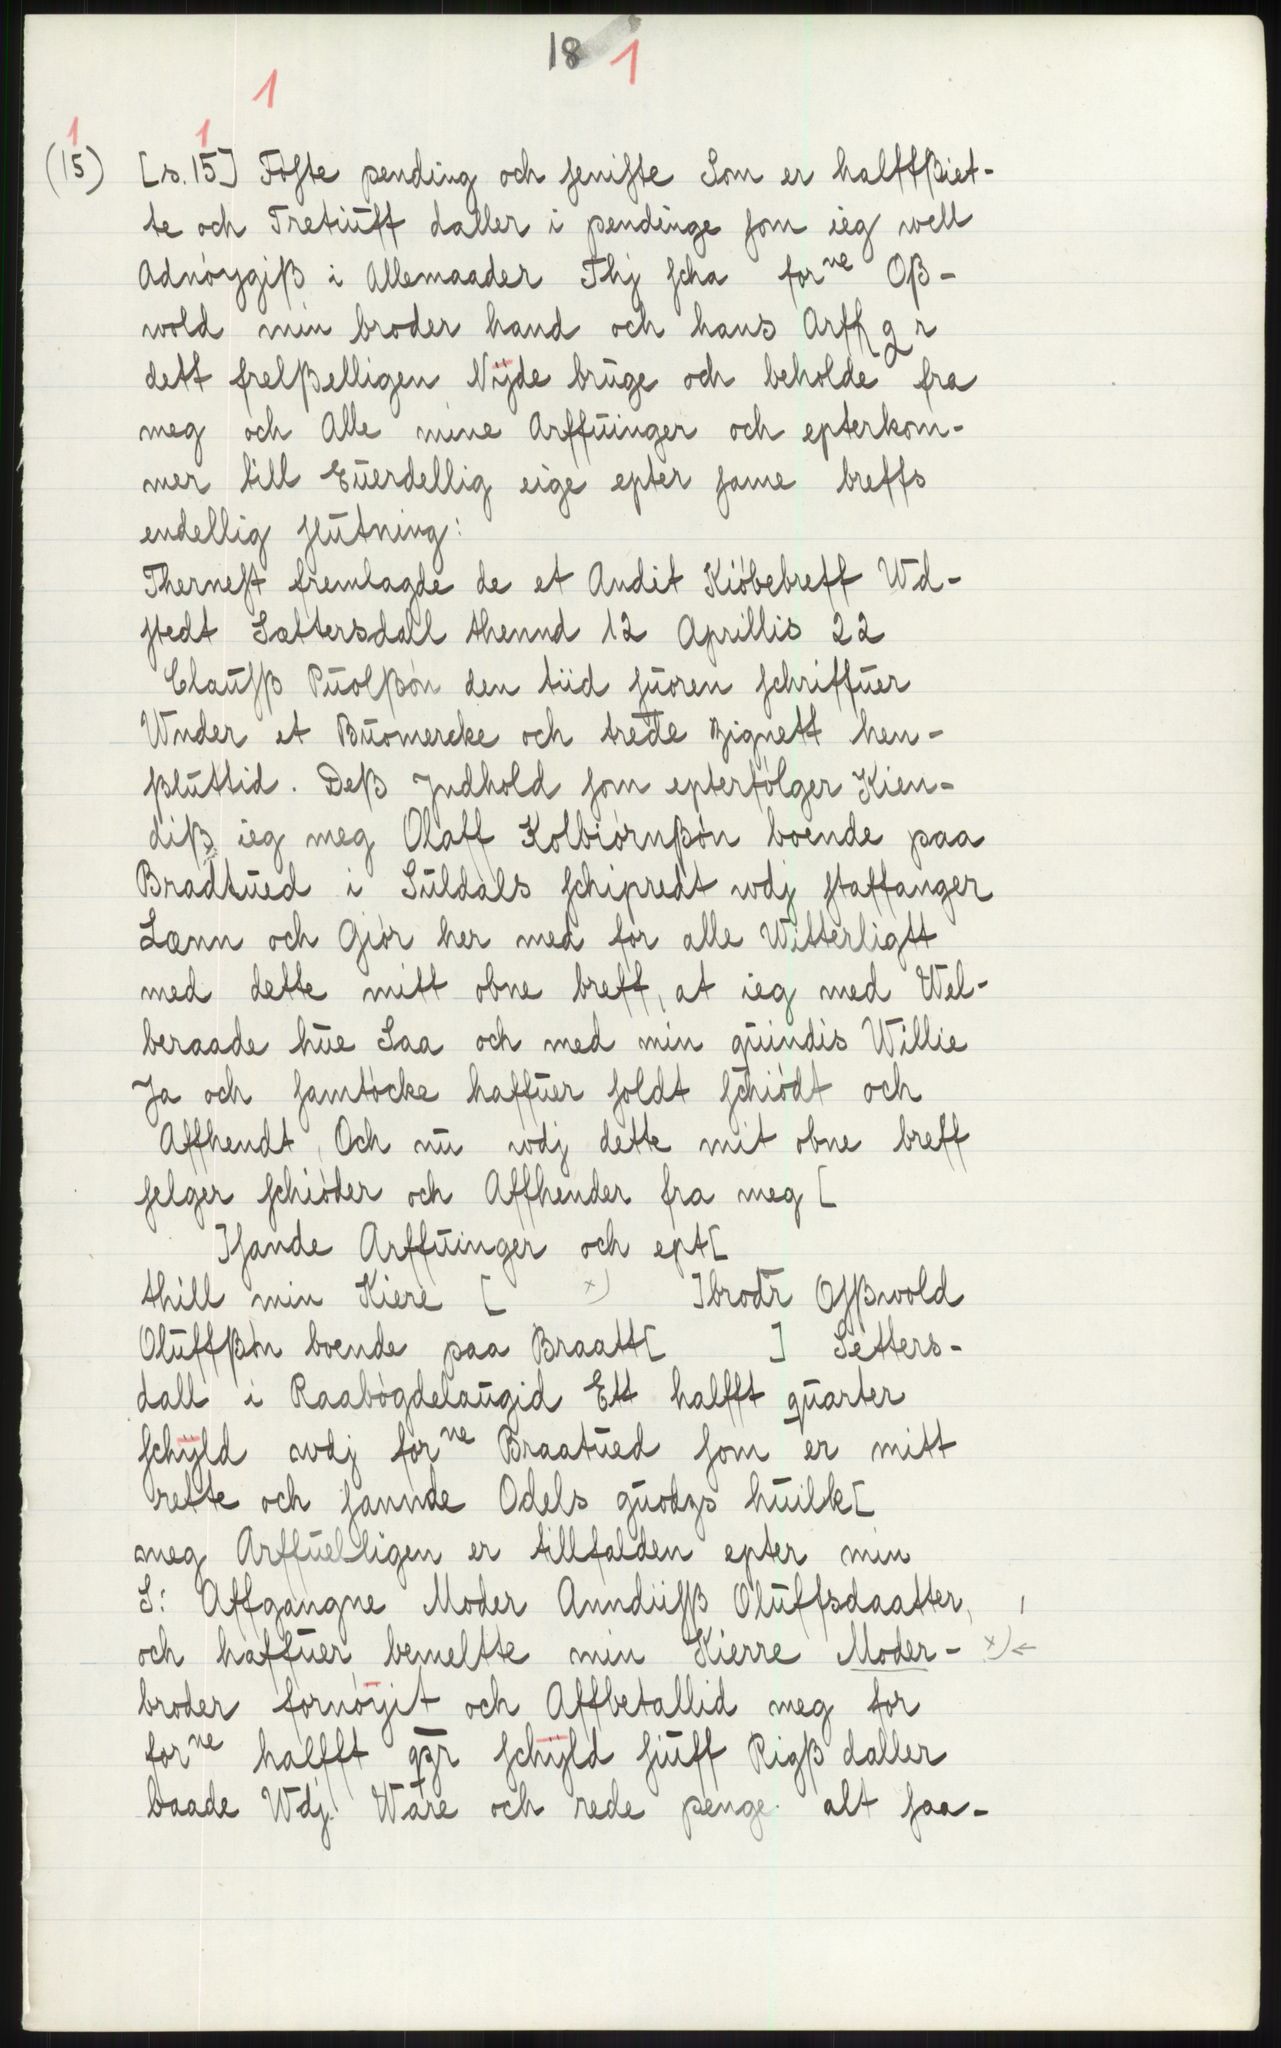 18 1
1
1 1
(15) [s. 15] Föfste pending och senifte Som er halffßiet-
te och Tretiuff daller i pendinge som ieg well
Adnöygiß i Allemaader Thj scha forne Oß-
wold min broder hand och hans Arff g r
dett frelßelligen Nÿde bruge och beholde fra
meg och Alle mine Arffuinger och epterkom-
mer till Euerdellig eige epter same breffs
endellig slutning:
Thernest fremlagde de et Andit Kiöbebreff Wd-
stedt Sættersdall thennd 12 Aprillis 22
Clausß Puolßön den tiid suoren schriffuer
Wnder et Buomercke och trede zignett hen-
ßluttid. Deß Jndhold som epterfölger Kien-
diß ieg meg Olaff Kolbiörnßön boende paa
Bradtued i Suldals schipredt wdj staffanger
Lænn och Giör her med for alle Witterligtt
med dette mitt obne breff, at ieg med Wel-
beraade hue Saa och med min quindis Willie
Ja och samtöcke haffuer soldt schiödt och
Affhendt, Och nu wdj dette mit obne breff
selger schiöder och Affhender fra meg [
]sande Arffuinger och ept[
thill min Kiere [ x) ]brodr Osßwold
Oluffßön boende paa Braatt[ ] Setters-
dall i Raabögdelaugid Ett halfft quarter
schÿld wdj forne Braatued som er mitt
rette och sannde Odels guodzs huilk[
meg Arffuelligen er tillfalden epter min
S: Affgangne Moder Anndusß Oluffsdaatter,
och haffuer bemeltte min Kierre Moder- x) ←
broder fornöyit och Affbetallid meg for
forne halfft qzr schÿld siuff Rigß daller
baade Wdj Ware och rede penge alt saa-